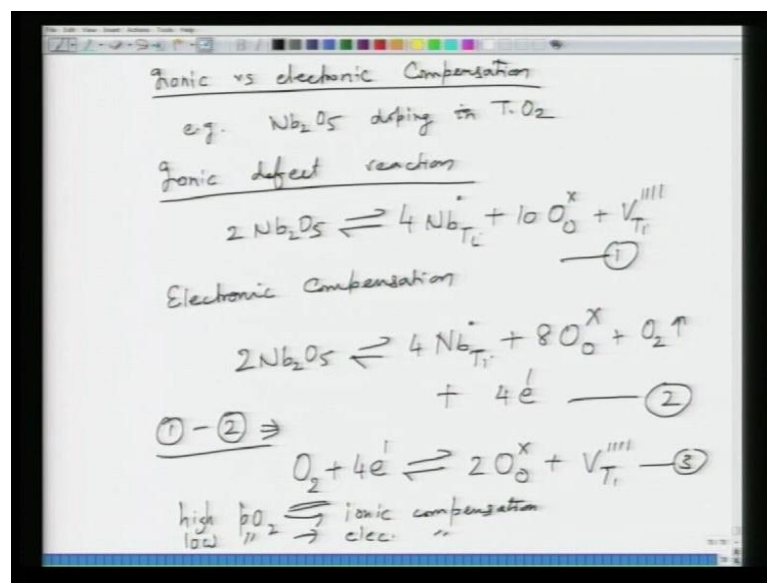 File Edit View Insert Actions Tools Help
Ionic vs electronic Compensation
e.g. Nb₂O₅ doping in TiO₂
Ionic defect reaction
2 Nb₂O₅ ⇌ 4 Nb_Ti^• + 10 O_O^x + V_Ti''''
— ①
Electronic Compensation
2Nb₂O₅ ⇌ 4 Nb_Ti^• + 8 O_O^x + O₂↑
+ 4e' — ②
① - ② ⇒
O₂ + 4e' ⇌ 2 O_O^x + V_Ti'''' — ③
high pO₂ ⇌ ionic compensation
low " → elec. "